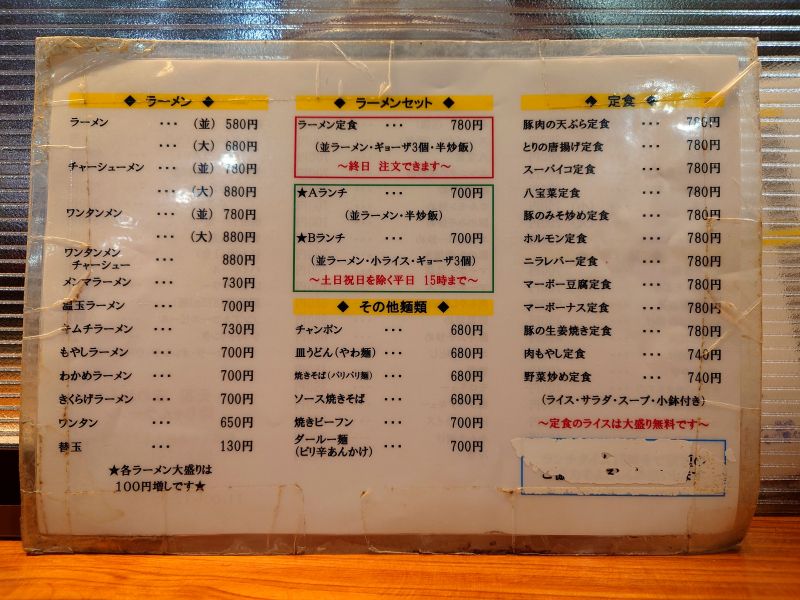 ◆ ラーメン ◆
ラーメン ・・・ (並) 580円
・・・ (大) 680円
チャーシューメン ・・・ (並) 780円
・・・ (大) 880円
ワンタンメン ・・・ (並) 780円
・・・ (大) 880円
ワンタンメン
チャーシュー ・・・ 880円
メンマラーメン ・・・ 730円
温玉ラーメン ・・・ 700円
キムチラーメン ・・・ 730円
もやしラーメン ・・・ 700円
わかめラーメン ・・・ 700円
きくらげラーメン ・・・ 700円
ワンタン ・・・ 650円
替玉 ・・・ 130円
★各ラーメン大盛りは
100円増しです★
◆ ラーメンセット ◆
ラーメン定食 ・・・ 780円
(並ラーメン・ギョーザ3個・半炒飯)
～終日 注文できます～
★Aランチ ・・・ 700円
(並ラーメン・半炒飯)
★Bランチ ・・・ 700円
(並ラーメン・小ライス・ギョーザ3個)
～土日祝日を除く平日 15時まで～
◆ その他麺類 ◆
チャンポン ・・・ 680円
皿うどん(やわ麺) ・・・ 680円
焼きそば(パリパリ麺) ・・・ 680円
ソース焼きそば ・・・ 680円
焼きビーフン ・・・ 700円
ダールー麺
(ピリ辛あんかけ) ・・・ 700円
◆ 定食 ◆
豚肉の天ぷら定食 ・・・ 780円
とりの唐揚げ定食 ・・・ 780円
スーパイコ定食 ・・・ 780円
八宝菜定食 ・・・ 780円
豚のみそ炒め定食 ・・・ 780円
ホルモン定食 ・・・ 780円
ニラレバー定食 ・・・ 780円
マーボー豆腐定食 ・・・ 780円
マーボーナス定食 ・・・ 780円
豚の生姜焼き定食 ・・・ 780円
肉もやし定食 ・・・ 740円
野菜炒め定食 ・・・ 740円
(ライス・サラダ・スープ・小鉢付き)
～定食のライスは大盛り無料です～